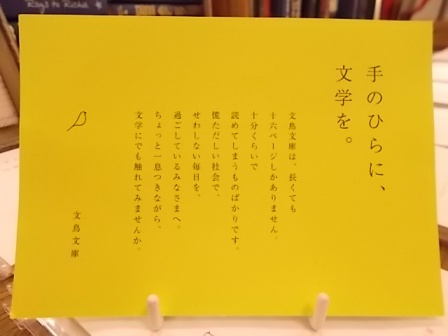 手のひらに、
文学を。
文鳥文庫は、長くても
十六ページしかありません。
十分くらいで
読めてしまうものばかりです。
慌ただしい社会で、
せわしない毎日を、
過ごしているみなさまへ。
ちょっと一息つきながら、
文学にでも触れてみませんか。
文鳥文庫